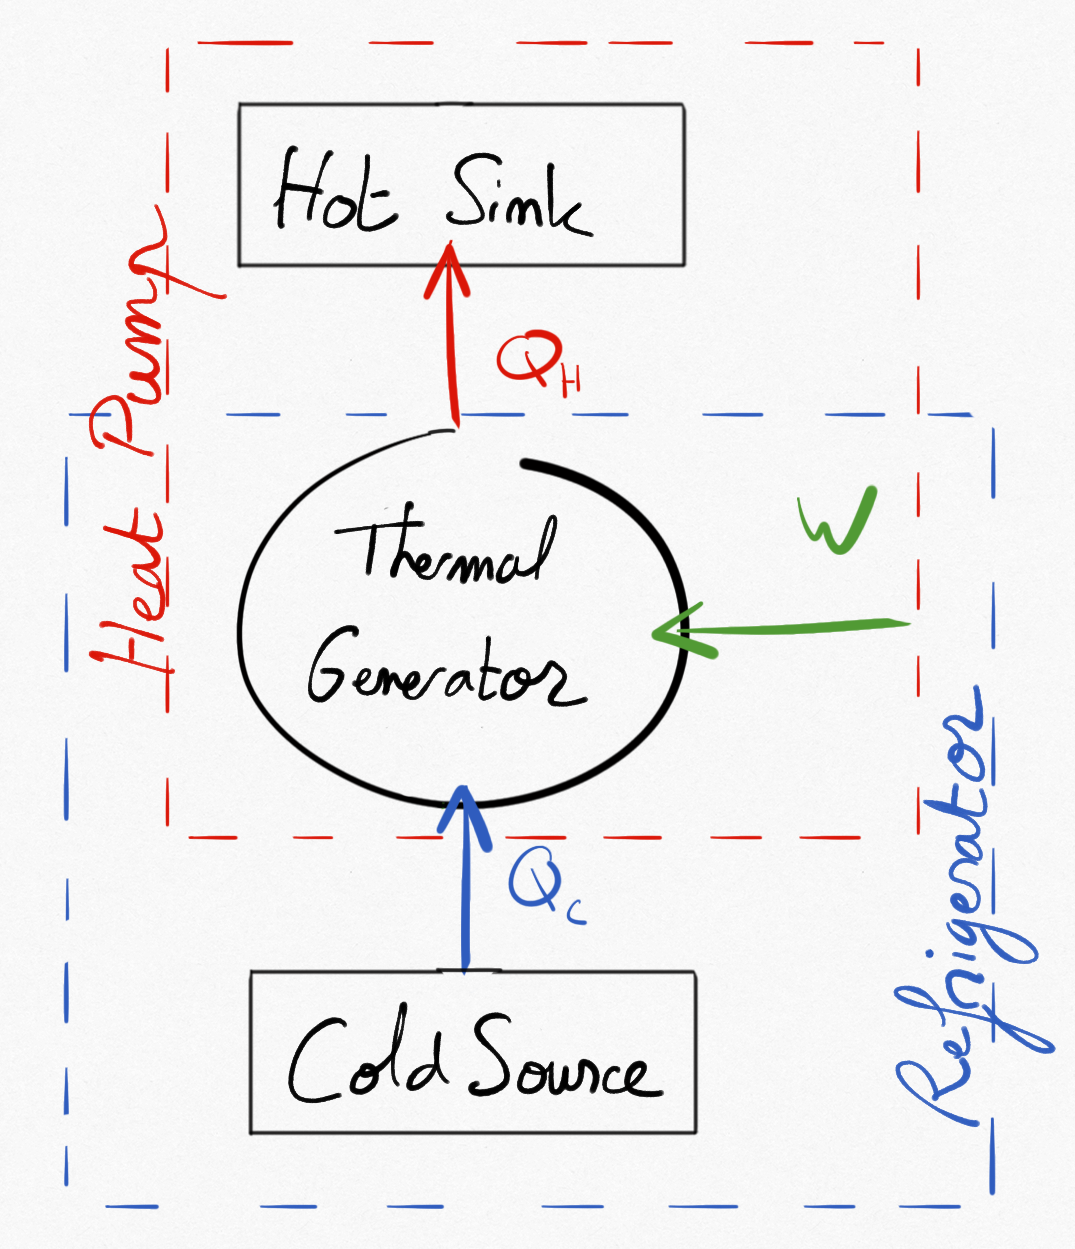 Hot Sink
Q_H
Heat Pump
W
Thermal
Generator
Q_C
Refrigerator
Cold Source